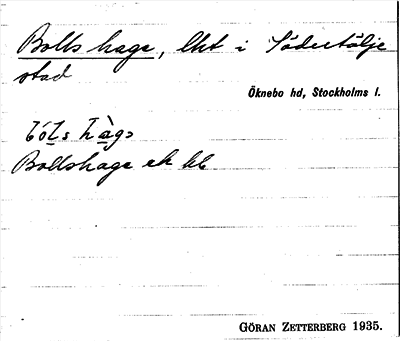 Bolls hage, lht i Södertälje
stad
Öknebo hd, Stockholms l.
bóls hàgɔ
Bollshage ek bl
GÖRAN ZETTERBERG 1935.